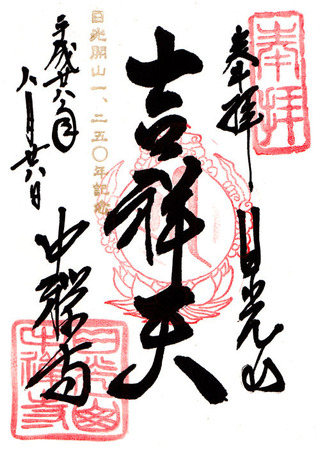 奉拝
奉拝
日光山
吉祥天
日光開山一、二五〇年記念
平成廿八年
八月廿八日
中禅寺
日光山中禅寺